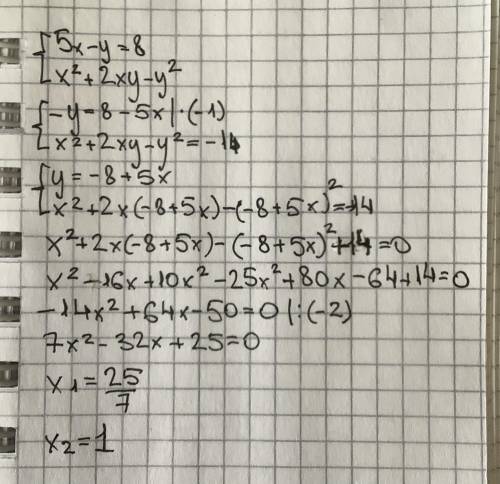 { 5x-y=8
x²+2xy-y²
{ -y=8-5x |·(-1)
x²+2xy-y²=-14
{ y=-8+5x
x²+2x(-8+5x)-(-8+5x)²=-14
x²+2x(-8+5x)-(-8+5x)²+14=0
x²-16x+10x²-25x²+80x-64+14=0
-14x²+64x-50=0 |:(-2)
7x²-32x+25=0
x₁=25/7
x₂=1